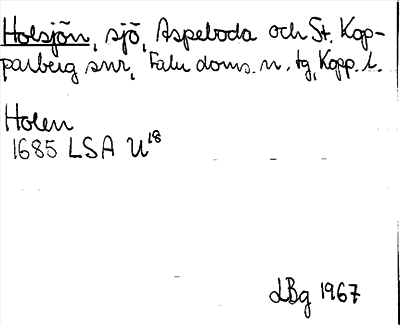 Holsjön, sjö, Aspeboda och St. Kop-
parberg snr, Falu doms. n. tg, Kopp. l.
Holen
1685 LSA U18
LBg 1967